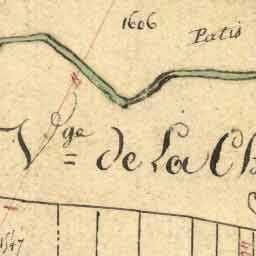 1606
Patis
V^ge de La Ch
1547